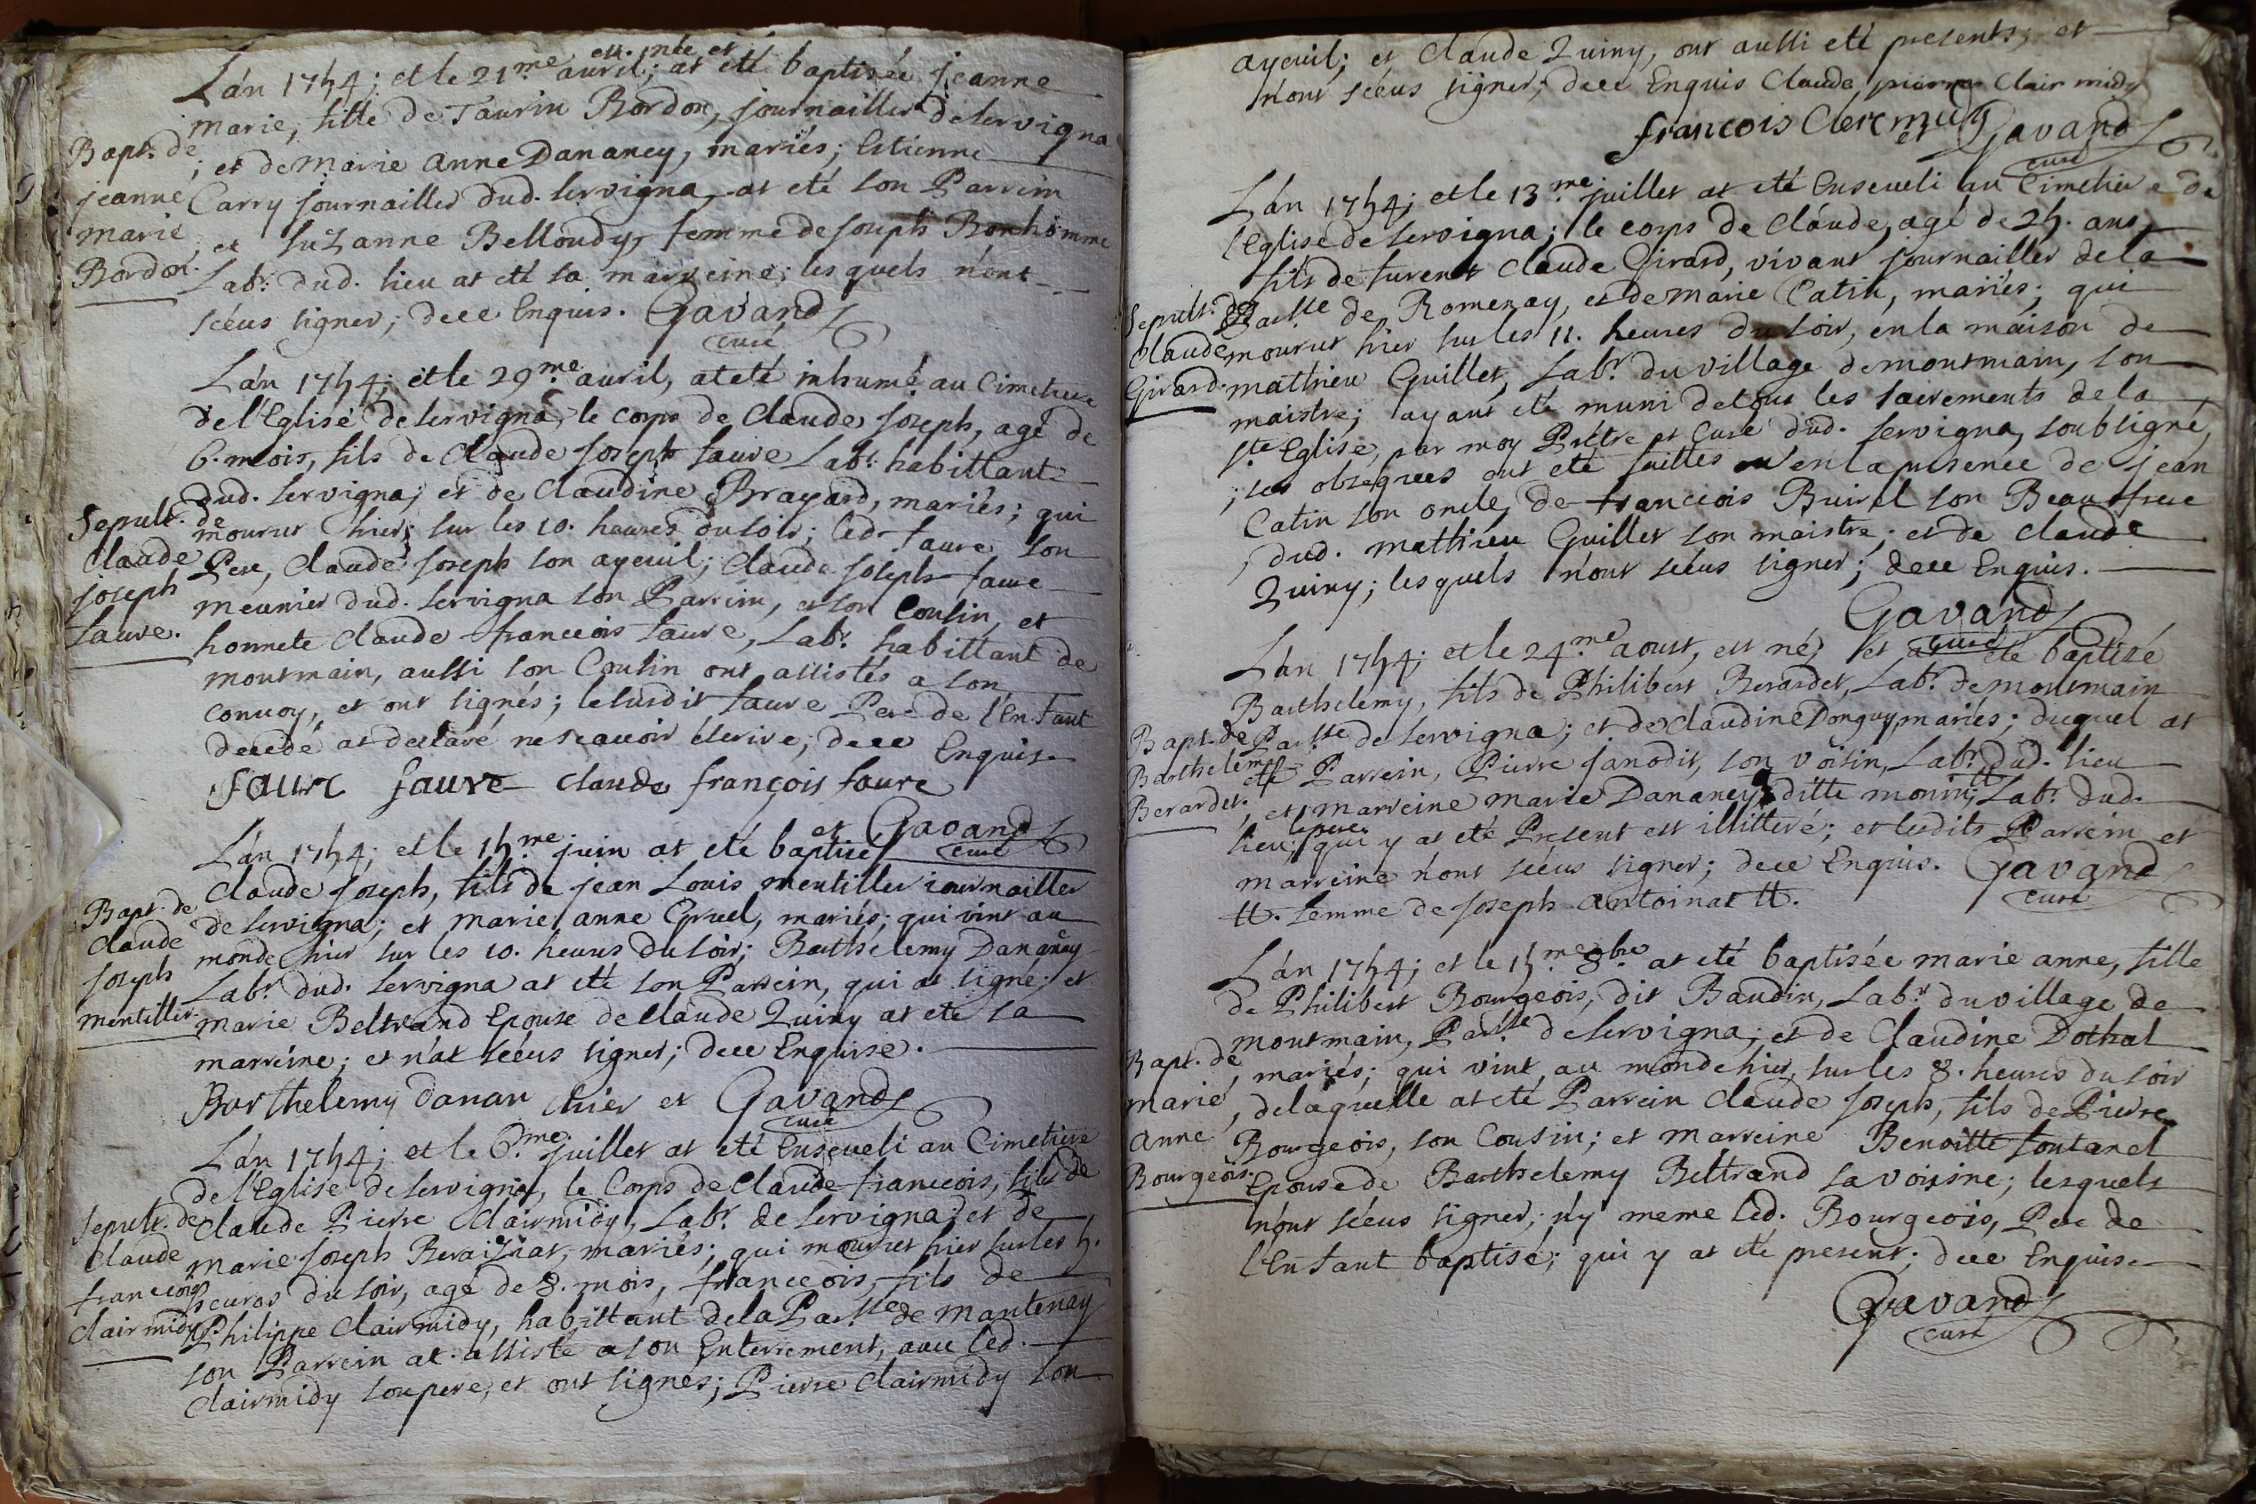 est née et
L'an 1754; et le 21.me avril; at eté baptisée jeanne
marie, fille de Taurin Bordon, journaillier de servigna
Bapt. de
jeanne
marie
Bordon.
; et de marie anne Dananey, mariés; Estienne
Carry journaillier dud. servigna at eté son Parrein
, et suzanne Belloudy, femme de joseph Bonhomme
Labr. dud. lieu at eté sa marreine; lesquels n'ont
scéus signer; dece Enquis. Gavand
curé
L'an 1754; et le 29.me avril, at eté inhumé au Cimetiere
de l'Eglise de servigna, le corps de Claude joseph, agé de
6. mois, fils de Claude joseph faure Labr. habittant
dud. servigna; et de Claudine Brayard, mariés; qui
Sepult. de
Claude
joseph
faure.
mourut hier; sur les 10. heures du soir; led. faure son
Pere, Claude joseph son ayeuil; Claude joseph faure
meunier dud. servigna son Parrein, et son Cousin, et
honnete Claude francois faure, Labr. habittant de
montmain, aussi son Cousin ont assistés a son
convoy, et ont signés; le susdit faure Pere de l'Enfant
decedé at declaré ne scavoir écrire; dece Enquis.
faure faure claude françois faure
et Gavand
curé
L'an 1754; et le 15.me juin at eté baptisé
Claude joseph, fils de jean Louis mentillier journaillier
Bapt. de
Claude
joseph
mentillier.
de servigna; et marie anne Gruel, mariés; qui vint au
monde hier sur les 10. heures du soir; Barthelemy Dananey
Labr. dud. servigna at eté son Parrein, qui at signé; et
marie Beltrand Epouse de Claude Quiny at eté sa
marreine; et n'at scéus signer; dece Enquise.
Barthelemy danan chier et Gavand
curé
L'an 1754; et le 6.me juillet at eté Enseveli au Cimetiere
de l'Eglise de servigna, le Corps de Claude francois, fils de
Sepult. de
Claude
francois
Clairmidy
Claude Pierre Clairmidy, Labr. de servigna; et de
marie joseph Beraiziat, mariés; qui mourut hier sur les 5.
heures du soir, agé de 8. mois, francois, fils de
Philippe Clairmidy, habittant de la Parsse de mantenay
son Parrein at assisté a son Enterrement, avec led.
Clairmidy son pere, et ont signés; Pierre Clairmidy son
ayeuil; et Claude Quiny, ont aussi eté presents, et
n'ont scéus signer; dece Enquis Claude pierre Clair midy
francois Clermidy
et Gavand
curé
L'an 1754; et le 13.me juillet at eté Enseveli au Cimetiere de
l'Eglise de servigna; le corps de Claude, agé de 25. ans,
fils de furent Claude Girard, vivant journaillier de la
Sepult. de
Claude
Girard.
Parsse de Romenay, et de marie Catin, mariés; qui
mourut hier sur les 11. heures du soir, en la maison de
mathieu Guillet, Labr. du village de montmain, son
maistre; ayant eté muni de tous les sacrements de la
ste Eglise, par moy Prêtre et Curé dud. servigna, soubsigné,
; ses obseques ont eté faittes en la presence de jean
Catin son oncle, de francois Buirel son Beaufrere
, dud. mathieu Guillet son maistre; et de Claude
Quiny; lesquels n'ont scéus signer; dece Enquis.
Gavand
curé
L'an 1754; et le 24.me aoust, est né, et at eté baptizé
Barthelemy, fils de Philibert Berardet, Labr. de montmain
Bapt. de
Barthelemy
Berardet.
Parsse de servigna; et de Claudine Donguy, mariés; duquel at
eté Parrein, Pierre janodit, son voisin, Labr. dud. lieu
, et marreine marie Dananey, ditte monin, tt Labr. dud.
lieu; le pere qui y at eté Present est illitteré; et lesdits Parrein et
marreine n'ont scéus signer; dece Enquis. Gavand
curé
tt. femme de joseph antoinat tt.
L'an 1754; et le 15.me 8.bre at eté baptisée marie anne, fille
de Philibert Bourgeois, dit Baudin, Labr. du village de
montmain, Parsse de servigna; et de Claudine Dothal
Bapt. de
marie
anne
Bourgeois.
, mariés; qui vint au monde hier, sur les 8. heures du soir
, de laquelle at eté Parrein Claude joseph, fils de Pierre
Bourgeois, son Cousin; et marreine Benoitte fontanel
Epouse de Barthelemy Beltrand sa voisine; lesquels
n'ont scéus signer; n'y meme led. Bourgeois, Pere de
l'Enfant baptisé; qui y at eté present; dece Enquis.
Gavand
curé